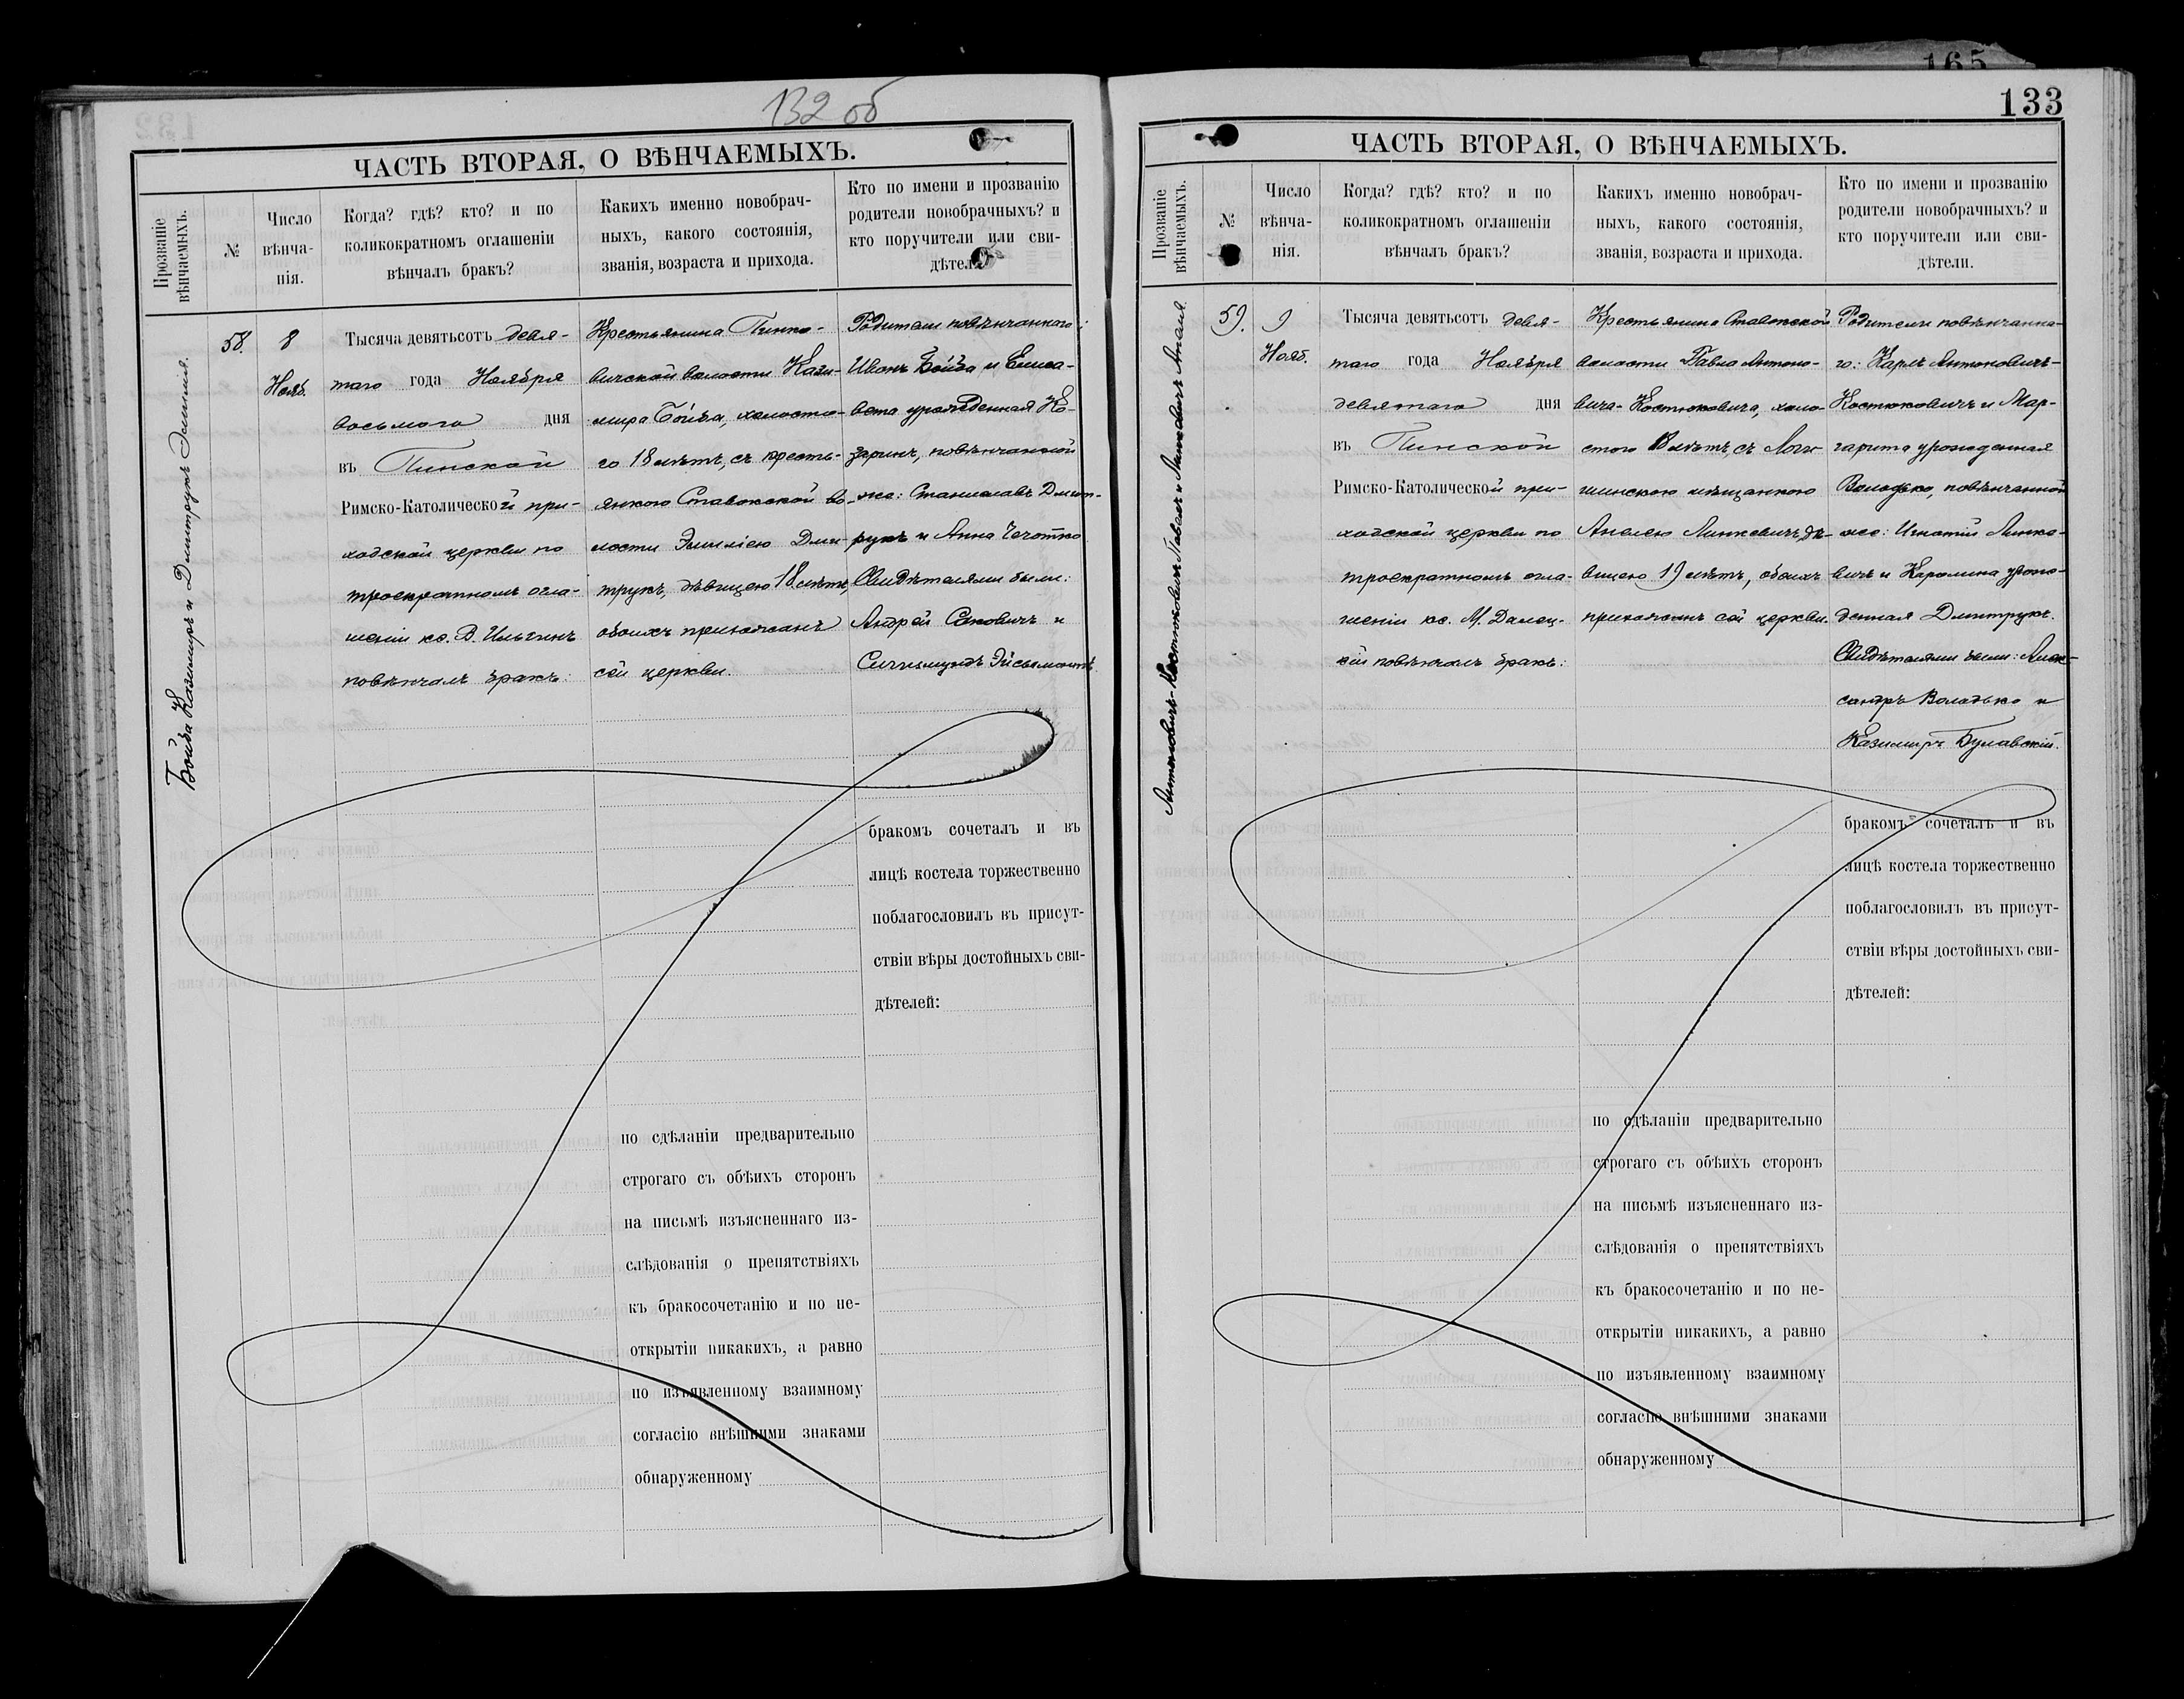 132 об
ЧАСТЬ ВТОРАЯ, О ВѢНЧАЕМЫХЪ.
Прозваніе вѣнчаемыхъ.
№
Число вѣнча-
нія.
Когда? гдѣ? кто? и по
коликократномъ оглашеніи
вѣнчалъ бракъ?
Какихъ именно новобрач-
ныхъ, какого состоянія,
званія, возраста и прихода.
Кто по имени и прозванію
родители новобрачныхъ? и
кто поручители или сви-
дѣтели.
Бойба Казимиръ и Дмитрукъ Эмилія.
58.
8
Нояб.
Тысяча девятьсотъ девя-
таго года Ноября
восьмого дня
въ Пинской
Римско-Католической при-
ходской церкви по
троекратномъ огла-
шеніи кс. В. Ильгинъ
повѣнчалъ бракъ:
Крестьянина Пинко-
вичской волости Кази-
мира Бойба, холосто-
го 18 лѣтъ, съ кресть-
янкою Ставокской во-
лости Эмиліею Дми-
трукъ, дѣвицею 18 лѣтъ,
обоихъ прихожанъ
сей церкви.
Родители повѣнчаннаго:
Иванъ Бойба и Елиса-
вета урожденная Ко-
заринъ, повѣнчанной
же: Станиславъ Дмит-
рукъ и Анна Чечотко
Свидѣтелями были:
Андрей Саковичъ и
Сигизмундъ Эйсымонтъ
бракомъ сочеталъ и въ
лицѣ костела торжественно
поблагословилъ въ присут-
ствіи вѣры достойныхъ сви-
дѣтелей:
по сдѣланіи предварительно
строгаго съ обѣихъ сторонъ
на письмѣ изъясненнаго из-
слѣдованія о препятствіяхъ
къ бракосочетанію и по не-
открытіи никакихъ, а равно
по изъявленному взаимному
согласію внѣшними знаками
обнаруженному
165
133
ЧАСТЬ ВТОРАЯ, О ВѢНЧАЕМЫХЪ.
Прозваніе вѣнчаемыхъ.
№
Число
вѣнча-
нія.
Когда? гдѣ? кто? и по
коликократномъ оглашеніи
вѣнчалъ бракъ?
Какихъ именно новобрач-
ныхъ, какого состоянія,
званія, возраста и прихода.
Кто по имени и прозванію
родители новобрачныхъ? и
кто поручители или сви-
дѣтели.
Антоновичъ-Костюковичъ Павелъ и Линкевичъ Анеля.
59.
9
Нояб.
Тысяча девятьсотъ девя-
таго года Ноября
девятаго дня
въ Пинской
Римско-Католической при-
ходской церкви по
троекратномъ огла-
шеніи кс. М. Далец-
кій повѣнчалъ бракъ:
Крестьянина Ставокской
волости Павла Антоно-
вича-Костюковича, холо-
стого 18 лѣтъ, съ Логи-
шинскою мѣщанкою
Анелею Линкевичъ, дѣ-
вицею 19 лѣтъ, обоихъ
прихожанъ сей церкви.
Родители повѣнчанна-
го: Карлъ Антоновичъ-
Костюковичъ и Мар-
гарита урожденная
Володько, повѣнчанной
же: Игнатій Линке-
вичъ и Каролина урож-
денная Дмитрукъ.
Свидѣтелями были: Алек-
сандръ Володько и
Казимиръ Булавскій.
бракомъ сочеталъ и въ
лицѣ костела торжественно
поблагословилъ въ присут-
ствіи вѣры достойныхъ сви-
дѣтелей:
по сдѣланіи предварительно
строгаго съ обѣихъ сторонъ
на письмѣ изъясненнаго из-
слѣдованія о препятствіяхъ
къ бракосочетанію и по не-
открытіи никакихъ, а равно
по изъявленному взаимному
согласію внѣшними знаками
обнаруженному